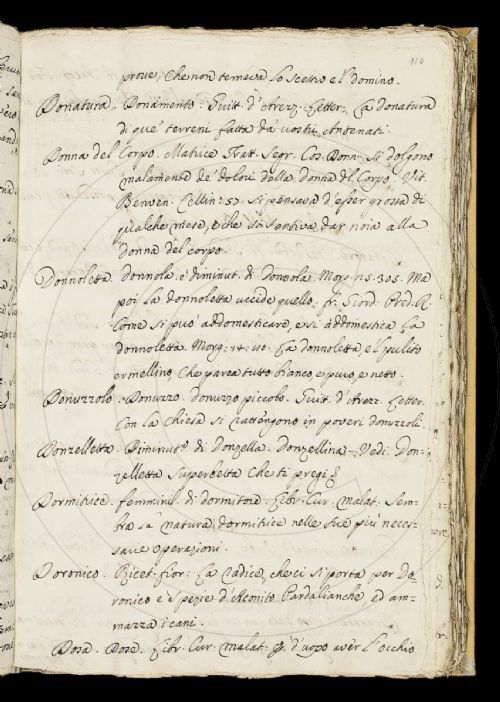 110
prove, che non temeva lo scettro e'l domino.
Donatura. Donamento. Guit. d'Arezz. Letter. La donatura
di que' terreni fatta da' vostri Antenati.
Donna del Corpo. Matrice Tratt. Segr. Cos. Donn. Si dolgono
malamente de' dolori della donna del Corpo. Vit.
Benven. Cellin: 57. si pensava d'esser grossa di
qualche mese, e che si sentiva dar noia alla
donna del corpo.
Donnoletta. donnola. e diminut. di Donnola. Morg. 25. 305. Ma
poi la donnoletta uccide quello. fr. Giord. Pred. R.
Come si può addomesticare, e si addomestica la
donnoletta. Morg: 14: 80. La donnoletta, e'l pulito
ermellino, che parea tutto bianco, e puro, e netto.
Donuzzolo. Donuzzo. donuzzo piccolo. Guit. d'Arezz. Letter.
Con la Chiesa si rattengono in poveri donuzzoli.
Donzelletta. Diminut.o di Donzella. Donzellina. Vedi. Don-
zelletta superbetta che ti pregi
Dormitrice. femminil. di dormitore. Libr. Cur. malat. Sem-
bra la natura dormitrice nelle sue più neces-
sarie operazioni.
Doronico. Ricet. fior: La radice, che ci si porta per Do-
ronico è spezie d'Aconito Pardalianche, ed am-
mazza i cani.
Dosa. Dose. Libr. Cur. malat. d'uopo aver l'occhio